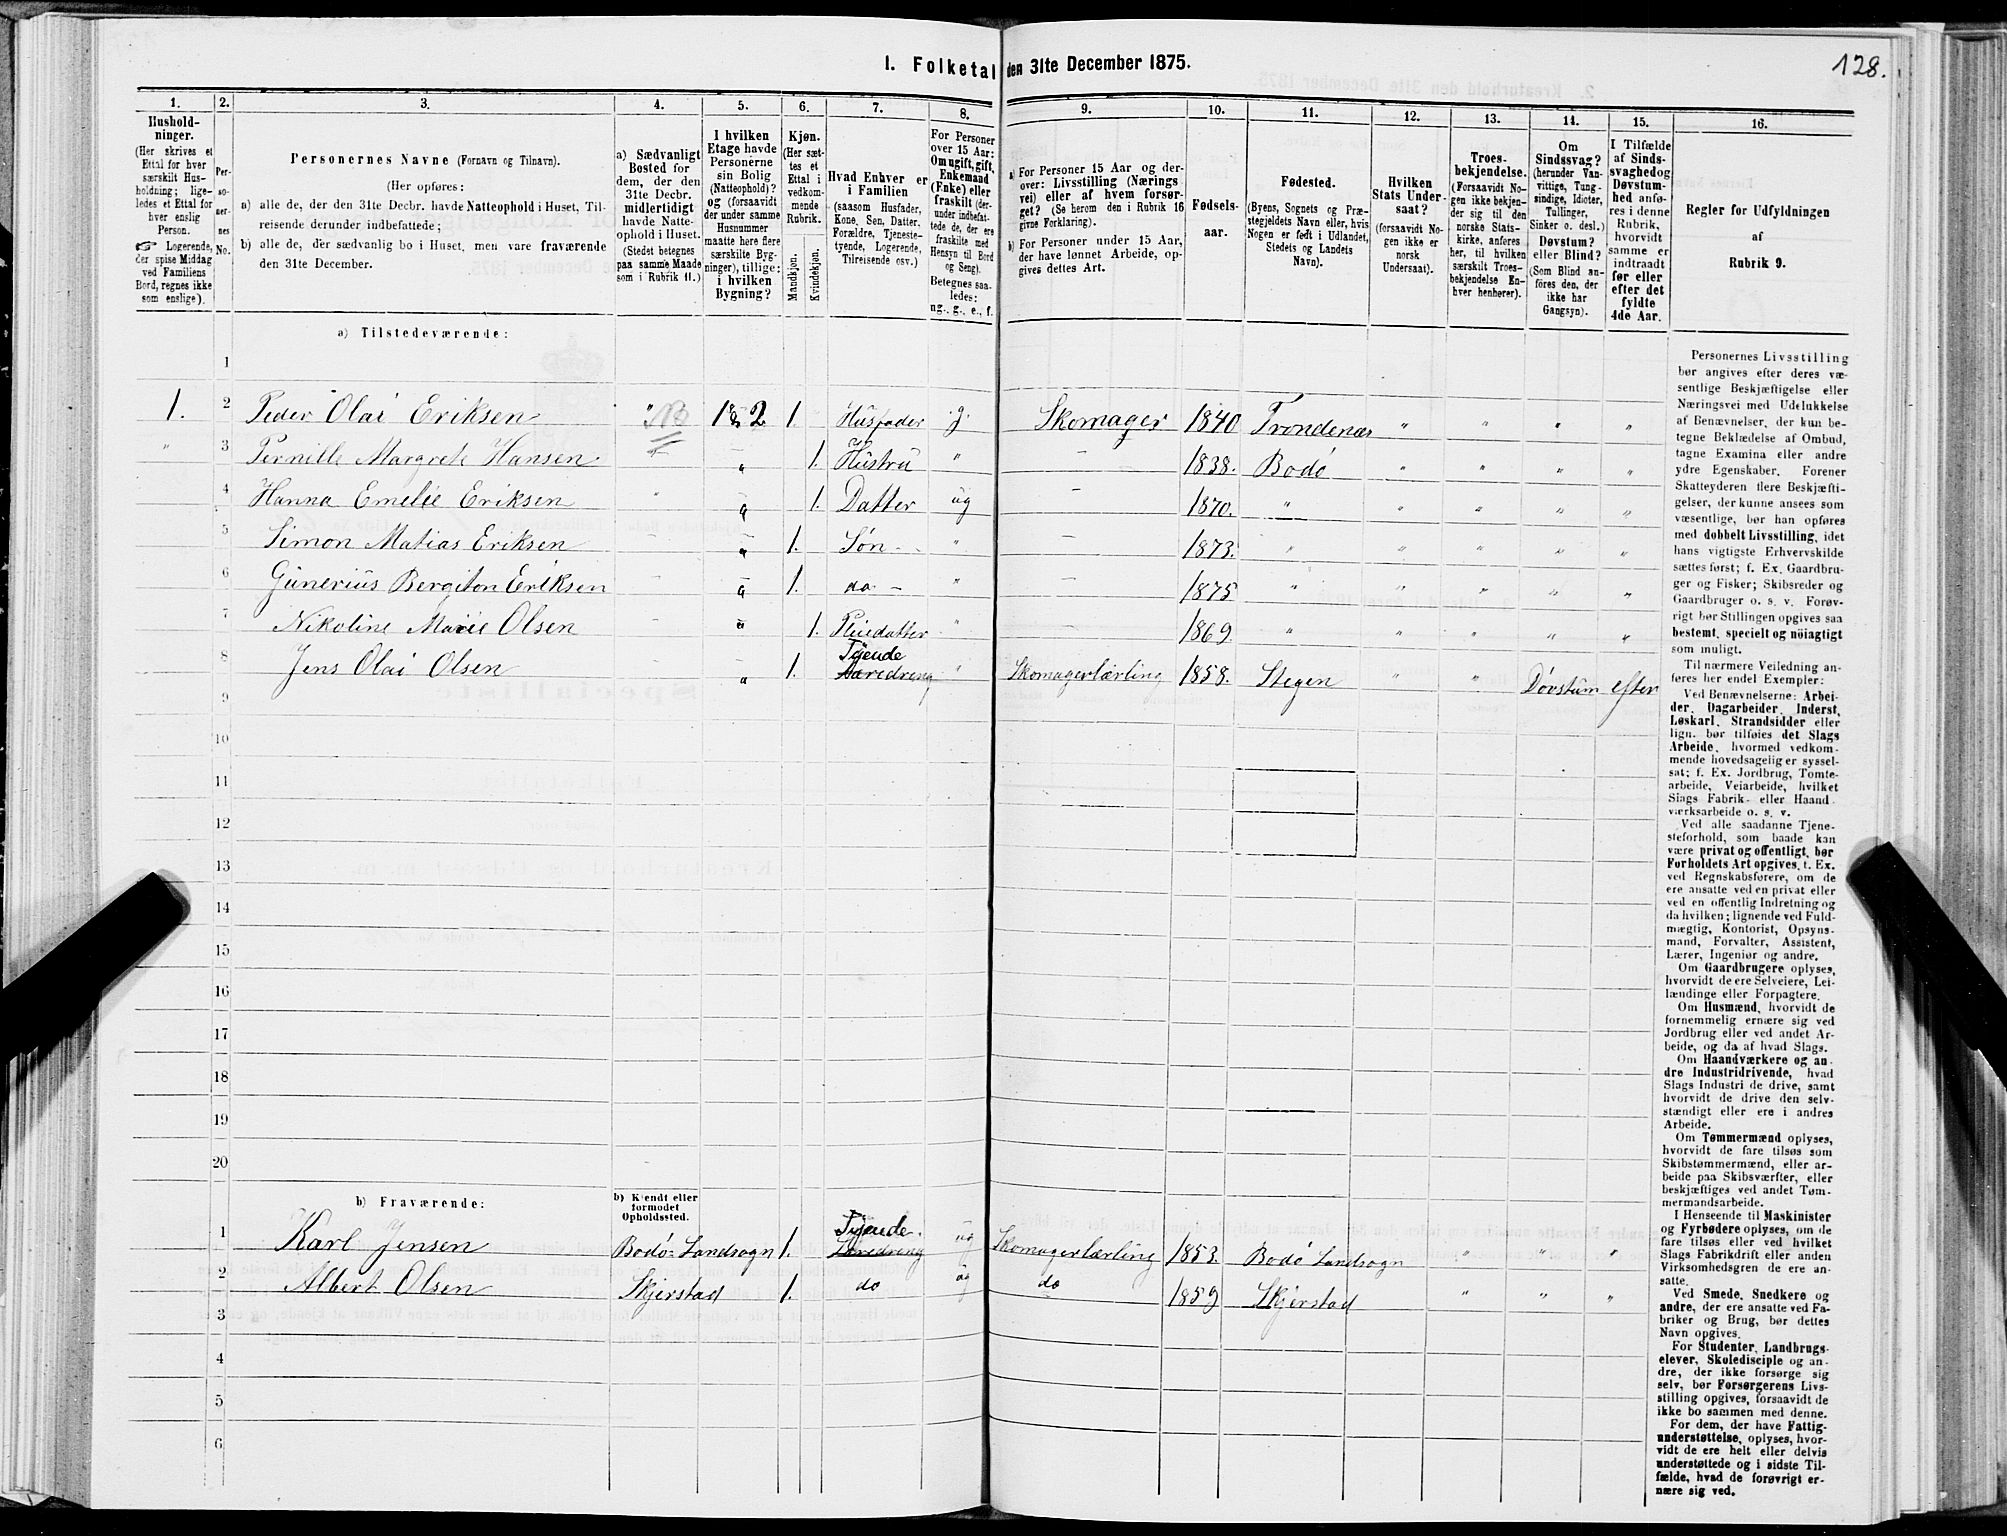 I. Folketal den 31te December 1875.
128.
1. 2. 3. 4. 5. 6. 7. 8. 9. 10. 11. 12. 13. 14. 15. 16.
Hushold-
ninger.
(Her skrives et
Ettal for hver
særskilt Hus-
holdning; lige-
ledes et Ettal for
hver enslig
Person.
☞ Logerende,
der spise Middag
ved Familiens
Bord, regnes ikke
som enslige).
Per-
so-
ner-
nes
No.
Personernes Navne (Fornavn og Tilnavn).
(Her opføres:
a) alle de, der den 31te Decbr. havde Natteophold i Huset, Til-
reisende derunder indbefattede;
b) alle de, der sædvanlig bo i Huset, men vare fraværende
den 31te December.
a) Sædvanligt
Bosted for
dem, der den
31te Decbr.
midlertidigt
havde Natte-
ophold i Huset.
(Stedet betegnes
paa samme Maade
som i Rubrik 11.)
I hvilken
Etage havde
Personerne
sin Bolig
(Natteophold)?
og (forsaavidt
der under samme
Husnummer
maatte høre flere
særskilte Byg-
ninger), tillige:
i hvilken
Bygning?
Kjøn.
(Her sæt-
tes et
Ettal i
vedkom-
mende
Rubrik.
Mandkjøn.
Kvindekjøn.
Hvad Enhver er
i Familien
(saasom Husfader,
Kone, Søn, Datter,
Forældre, Tjeneste-
tyende, Logerende,
Tilreisende osv.)
For Personer
over 15 Aar:
Om ugift, gift,
Enkemand
(Enke) eller
fraskilt (der-
under indbefat-
tede de, der ere
fraskilte med
Hensyn til Bord
og Seng).
Betegnes saa-
ledes:
ug., g., e., f.
a) For Personer 15 Aar og der-
over: Livsstilling (Nærings
vei) eller af hvem forsør-
get? (Se herom den i Rubrik 16
givne Forklaring).
b) For Personer under 15 Aar,
der have lønnet Arbeide, op-
gives dettes Art.
Fødsels-
aar.
Fødested.
(Byens, Sognets og Præ-
stegjeldets Navn eller, hvis
Nogen er født i Udlandet,
Stedets og Landets
Navn).
Hvilken
Stats Under-
saat?
(forsaavidt No-
gen ikke er
norsk
Undersaat).
Troes-
bekjendelse.
(Forsaavidt No-
gen ikke bekjen-
der sig til den
norske Stats-
kirke, anføres
her, til hvilken
særskilt Troes-
bekjendelse En-
hver henhører).
Om
Sindssvag?
(herunder Van-
vittige, Tung-
sindige, Idioter,
Tullinger,
Sinker o. desl.)
Døvstum?
eller Blind?
(Som Blind an-
føres den, der
ikke har
Gangsyn).
I Tilfælde
af Sinds-
svaghed og
Døvstum-
hed anfø-
res i denne
Rubrik,
hvorvidt
samme er
indtraadt
før eller
efter det
fyldte
4de Aar.
Regler for Udfyldningen
af
Rubrik 9.
a) Tilstedeværende:
1
1. 2 Peder Olai Eriksen " 2 1. Husfader g. Skomager 1840 Trondenæs " " " "
" 3 Pernille Margrete Hansen – " 1. Hustru " – 1838. Bodø " " " "
4 Hanna Emelie Eriksen " – " 1. Datter ug – 1870. " " " " "
5 Simon Matias Eriksen – – " 1. Søn – " – 1873. " " " " "
6 Gunerius Bergiton Eriksen – – " 1. do – " – 1875 " " " " "
7 Nikoline Marie Olsen – " 1. Pleiedatter " – 1869. " " " " "
8 Jens Olai Olsen – – " 1. Tyende Læredreng " Skomagerlærling 1858. Stegen " " Døvstum efter
9
10
11
12
13
14
15
16
17
18
19
20
b) Fraværende:
b) Kjendt eller
formodet
Opholdssted.
1 Karl Jensen Bodø Landsogn 1. Tyende Læredreng ug Skomagerlærling 1853. Bodø Landsogn " " "
2 Albert Olsen Skjerstad 1. do ug do 1859 Skjerstad " " "
3
4
5
6
Personernes Livsstilling
bør angives efter deres væ-
sentlige Beskjæftigelse eller
Næringsvei med Udelukkelse
af Benævnelser, der kun be-
tegne Beklædelse af Ombud,
tagne Examina eller andre
ydre Egenskaber. Forener
Skatteyderen flere Beskjæfti-
gelser, der kunne ansees som
væsentlige, bør han opføres
med dobbelt Livsstilling, idet
hans vigtigste Erhvervskilde
sættes først; f. Ex. Gaardbru-
ger og Fisker; Skibsreder og
Gaardbruger o. s. v. Forøv-
rigt bør Stillingen opgives saa
bestemt, specielt og nøiagtigt
som muligt.
Til nærmere Veiledning an-
føres her endel Exempler:
Ved Benævnelserne: Arbei-
der, Dagarbeider, Inderst,
Løskarl, Strandsidder eller
lign. bør tilføies det Slags
Arbeide, hvormed vedkom-
mende hovedsagelig er syssel-
sat; f. Ex. Jordbrug, Tomte-
arbeide, Veiarbeide, hvilket
Slags Fabrik- eller Haand-
værksarbeide o. s. v.
Ved alle saadanne Tjene-
steforhold, som baade kan
være privat og offentligt, bør
Forholdets Art opgives, t. Ex.
ved Regnskabsførere, om de
ere ansatte ved en privat eller
ved en offentlig Indretning og
da hvilken; lignende ved Fuld-
mægtig, Kontorist, Opsyns-
mand, Forvalter, Assistent,
Lærer, Ingeniør og andre.
Om Gaardbrugere oplyses,
hvorvidt de ere Selveiere, Lei-
lændinge eller Forpagtere.
Om Husmænd, hvorvidt de
fornemmelig ernære sig ved
Jordbrug eller ved andet Ar-
beide, og da af hvad Slags.
Om Haandværkere og an-
dre Industridrivende, hvad
Slags Industri de drive, samt
hvorvidt de drive den selv-
stændigt eller ere i andres
Arbeide.
Om Tømmermænd oplyses,
hvorvidt de fare tilsøs som
Skibstømmermænd, eller ar-
beide paa Skibsværfter, eller
beskjæftiges ved andet Tøm-
mermandsarbeide.
I Henseende til Maskinister
og Fyrbødere oplyses, om de
fare tilsøs eller ved hvilket
Slags Fabrikdrift eller anden
Virksomhedsgren de ere an-
satte.
Ved Smede, Snedkere og
andre, der ere ansatte ved Fa-
briker og Brug, bør dettes
Navn opgives.
For Studenter, Landbrugs-
elever, Skoledisciple og an-
dre, der ikke forsørge sig
selv, bør Forsørgerens Livs-
stilling opgives, forsaavidt de
ikke bo sammen med denne.
For dem, der have Fattig-
understøttelse, oplyses, hvor-
vidt de ere helt eller delvis
understøttede og i sidste Til-
fælde, hvad de forøvrigt er-
nære sig ved.